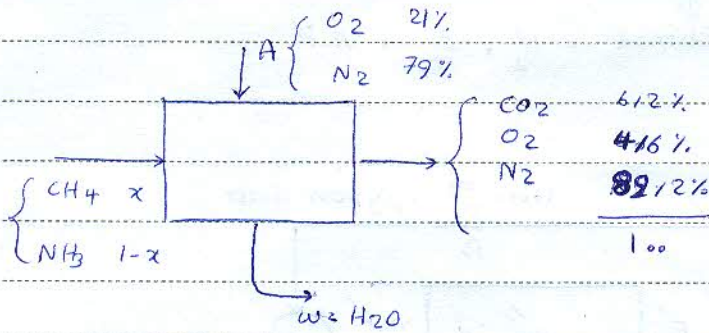 A { O2 21%
N2 79%
CO2 6,2%
O2 4,6%
N2 89,2%
100
{ CH4 x
NH3 1-x
W= H2O